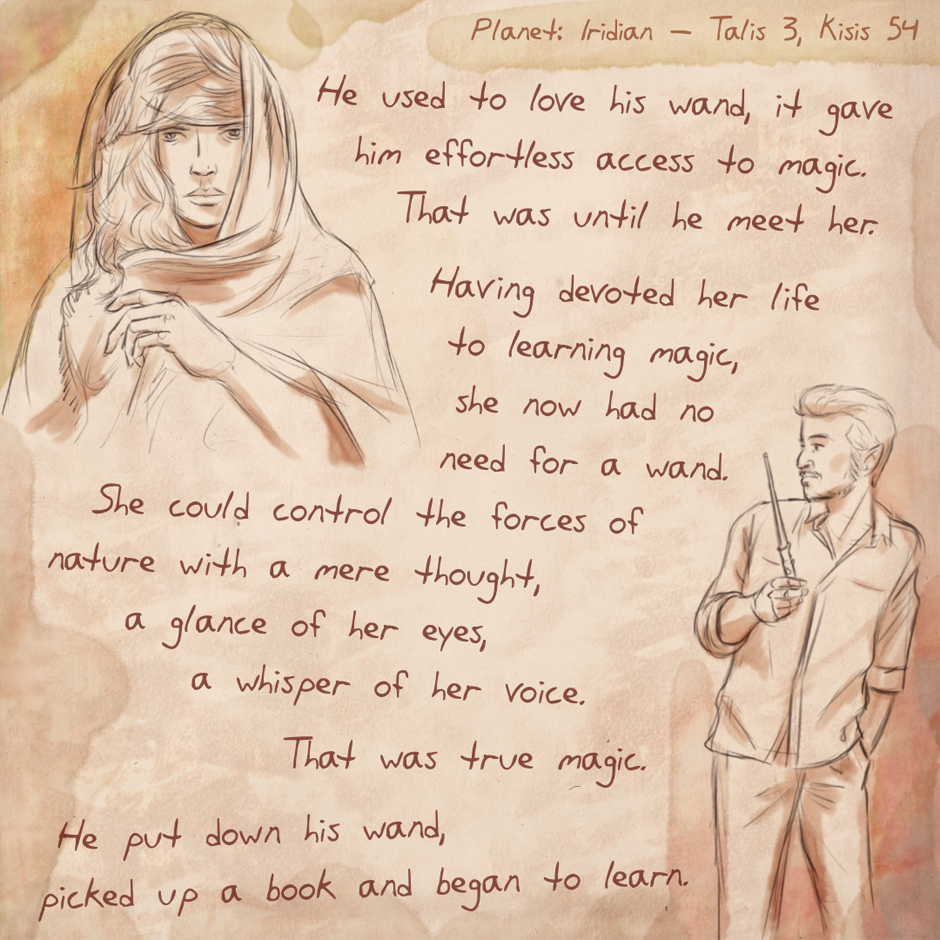 Planet: Iridian – Talis 3, Kisis 54
He used to love his wand, it gave
him effortless access to magic.
That was until he meet her.
Having devoted her life
to learning magic,
she now had no
need for a wand.
She could control the forces of
nature with a mere thought,
a glance of her eyes,
a whisper of her voice.
That was true magic.
He put down his wand,
picked up a book and began to learn.